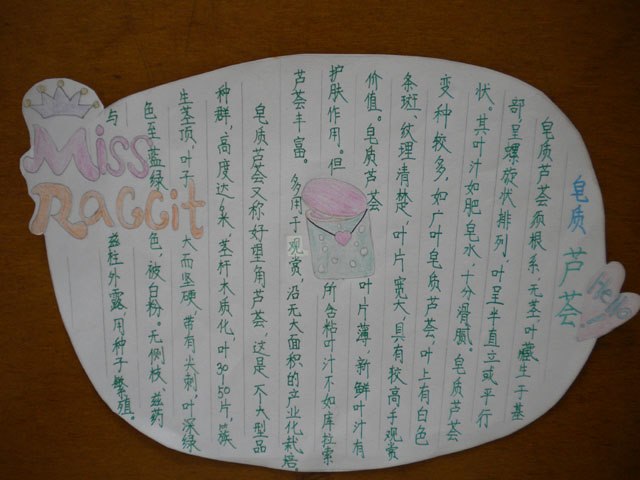 皂质芦荟
皂质芦荟须根系,无茎叶藏生于基
部,呈螺旋状排列,叶呈半直立或平行
状。其叶汁如肥皂水,十分滑腻。皂质芦荟
变种较多,如广叶皂质芦荟,叶上有白色
条斑、纹理清楚,叶片宽大,具有较高乎观赏
价值。皂质芦荟叶片薄,新鲜叶汁有
护肤作用。但所含粘叶汁不如库拉索
芦荟丰富。多用于观赏,沿无大面积的产业化栽培。
皂质芦荟又称好望角芦荟,这是不大型品
种群,高度达6米,茎杆木质化,叶30-50片,簇
生茎顶,叶子大而坚硬,带有尖刺,叶深绿
色至蓝绿色,被白粉。无侧枝、兹药
与兹柱外露,用种子繁殖。
Miss
RaGGit
Hello